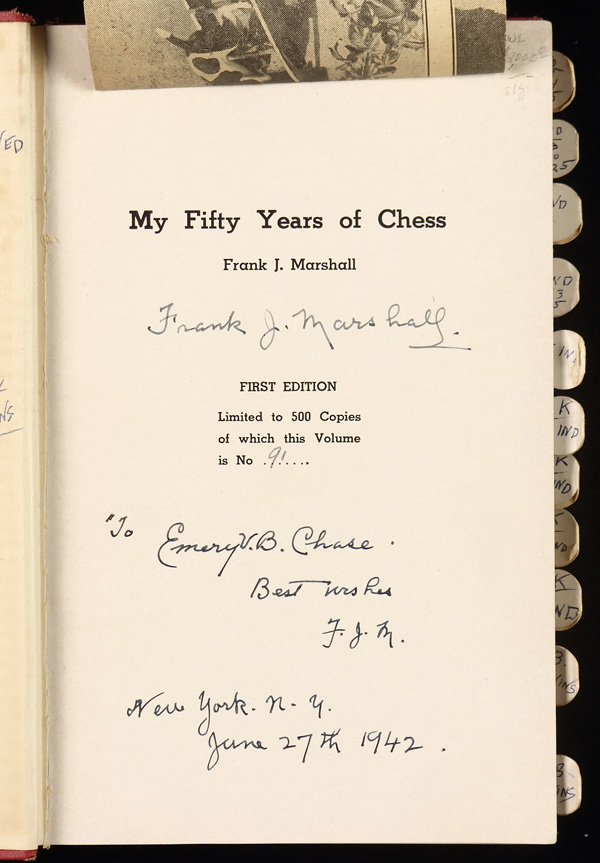 My Fifty Years of Chess
Frank J. Marshall
Frank J. Marshall.
FIRST EDITION
Limited to 500 Copies
of which this Volume
is No .91....
"To Emery V.B. Chase.
Best wishes
F.J.M.
New York. N-Y.
June 27th 1942.
ND
K
IND
K
IND
K
ND
K
ND